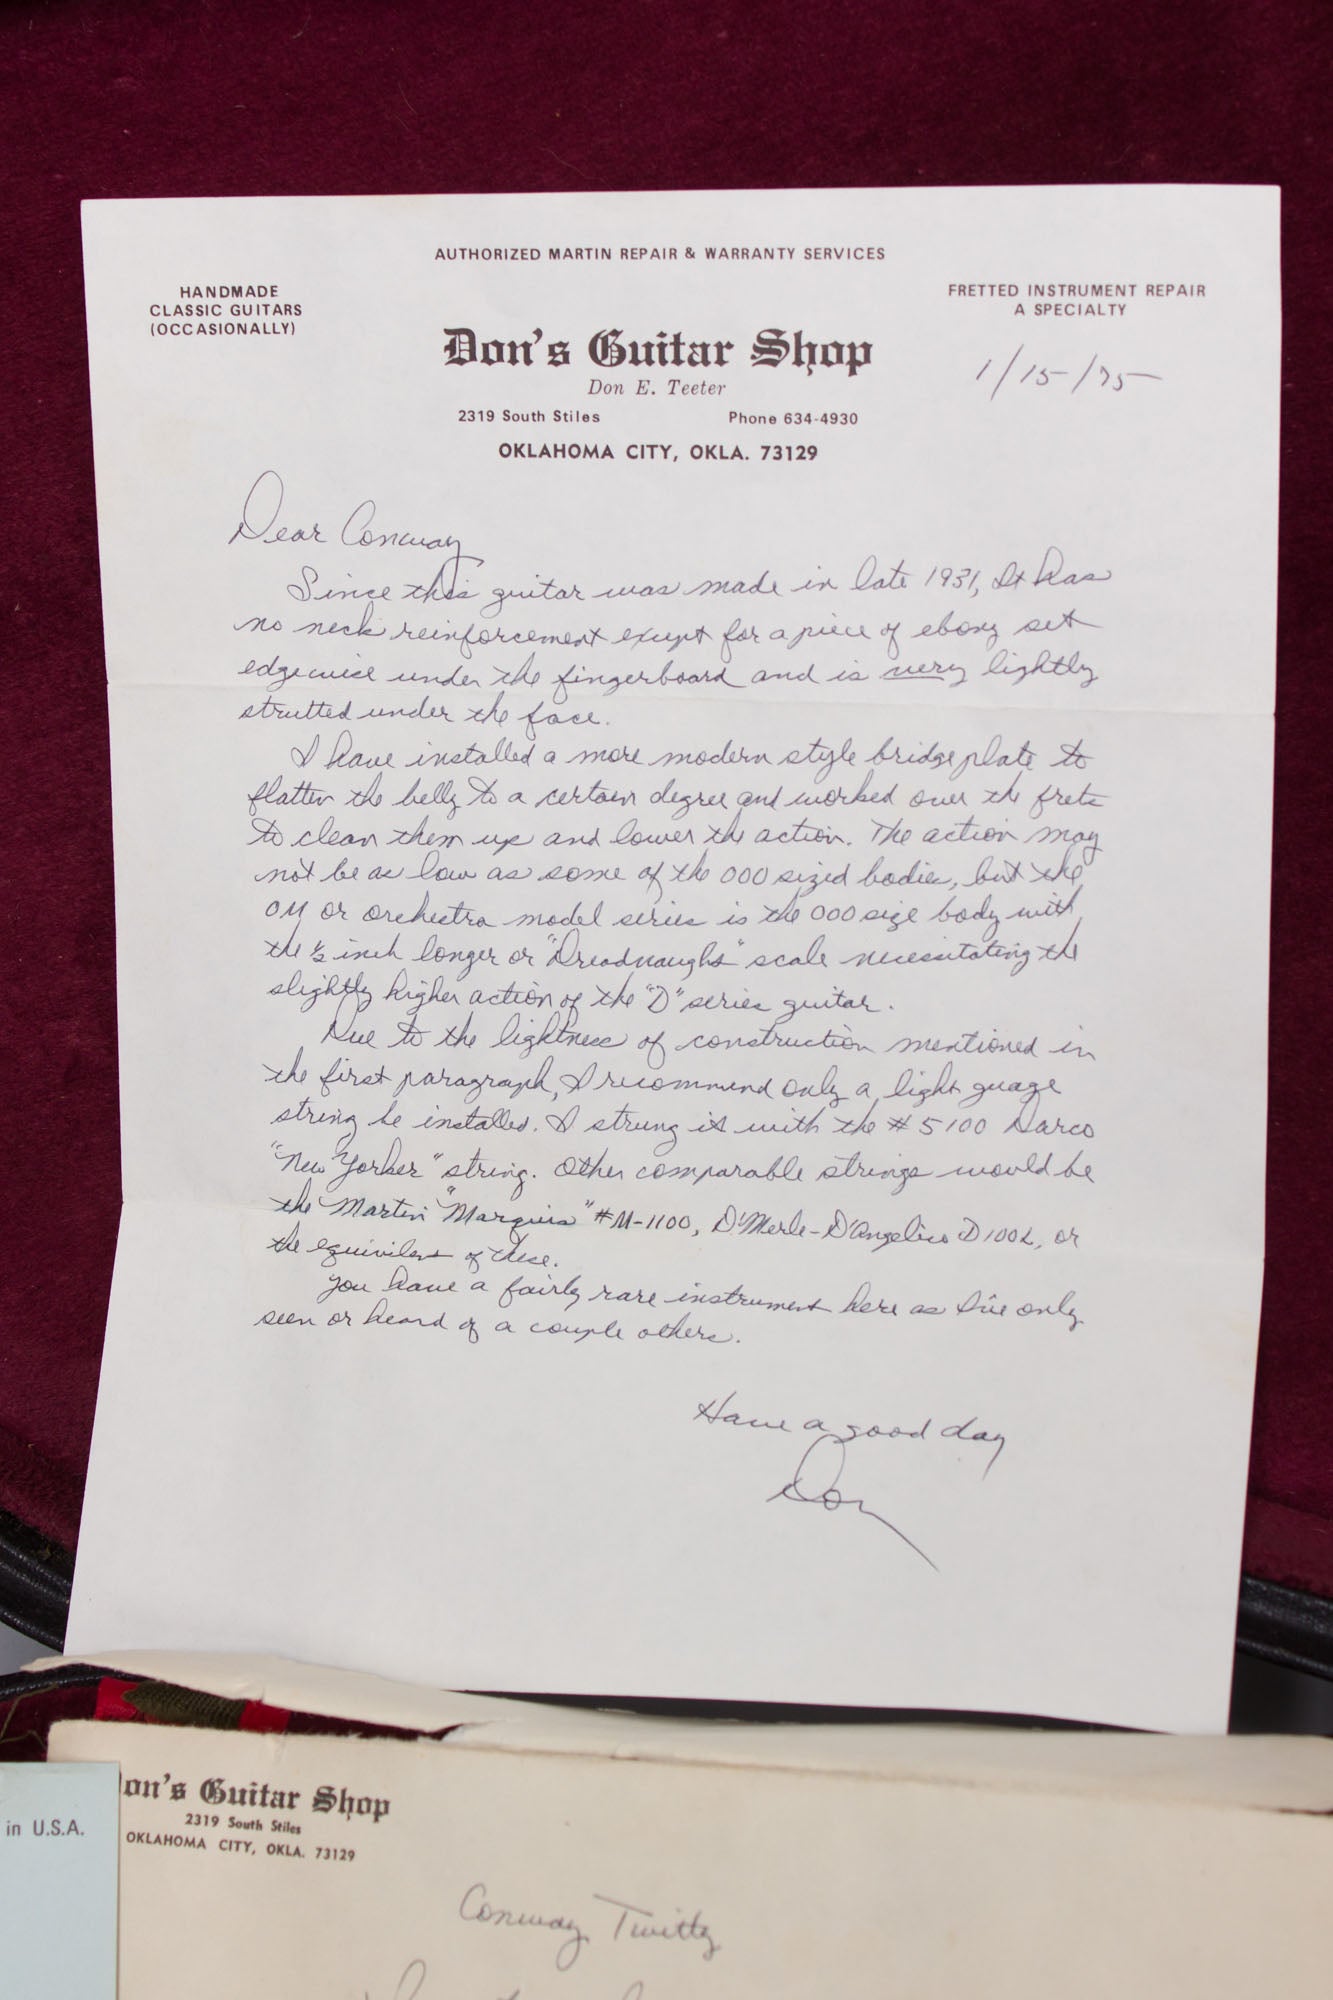 AUTHORIZED MARTIN REPAIR & WARRANTY SERVICES
HANDMADE
CLASSIC GUITARS
(OCCASIONALLY)
FRETTED INSTRUMENT REPAIR
A SPECIALTY
Don's Guitar Shop
Don E. Teeter
2319 South Stiles Phone 634-4930
OKLAHOMA CITY, OKLA. 73129
1/15/75
Dear Conway
Since this guitar was made in late 1931, It has
no neck reinforcement except for a piece of ebony set
edgewise under the fingerboard and is very lightly
strutted under the face.
I have installed a more modern style bridge plate to
flatten the belly to a certain degree and worked over the frets
to clean them up and lower the action. The action may
not be as low as some of the 000 sized bodies, but the
OM or orchestra model series is the 000 size body with
the ½ inch longer or "Dreadnaught" scale necessitating the
slightly higher action of the "D" series guitar.
Due to the lightness of construction mentioned in
the first paragraph, I recommend only a light guage
string be installed. I strung it with the #5100 Darco
"New Yorker" string. Other comparable strings would be
the Martin "Marquis" #M-1100, D'Merle-D'Angelico D100L, or
the equivilent of these.
You have a fairly rare instrument here as I've only
seen or heard of a couple others.
Have a good day
Don
on's Guitar Shop
2319 South Stiles
OKLAHOMA CITY, OKLA. 73129
in U.S.A.
Conway Twitty